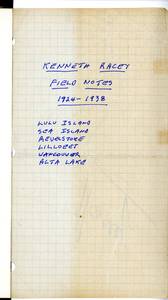 KENNETH RACEY
FIELD NOTES
1924-1938
LULU ISLAND
SEA ISLAND
REVELSTOKE
LILLOOET
VANCOUVER
ALTA LAKE